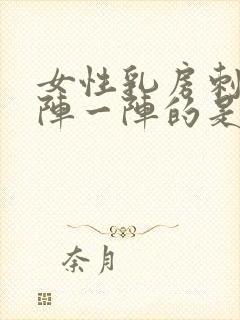 女性乳房刺
陣一陣的是
奈月